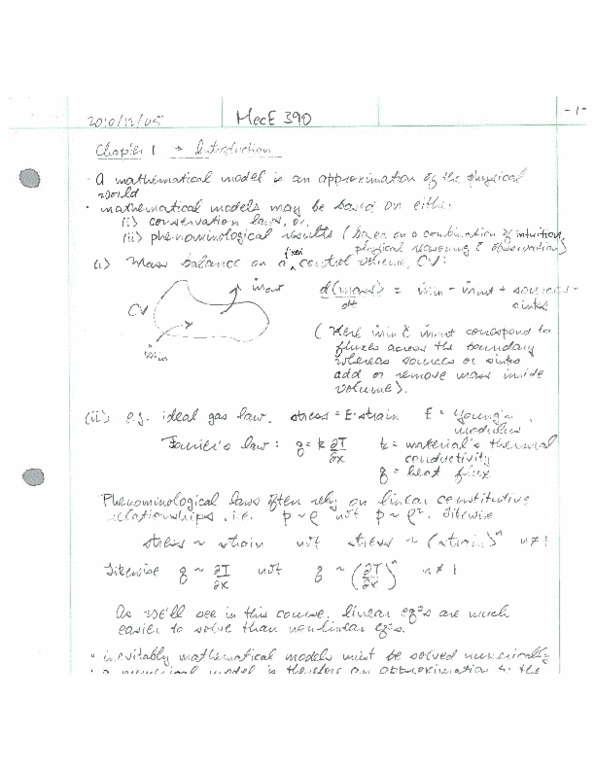 2010/12/05 MecE 390 -1-
Chapter 1 → Introduction
· A mathematical model is an approximation of the physical
world
· mathematical models may be based on either
(i) conservation laws, or
(ii) phenominological results (based on a combination of intuition,
physical reasoning & observation)
(i) Mass balance on a fixed control volume, CV:
ṁout
CV
ṁin
d(mass)/dt = ṁin - ṁout + sources - sinks
(Here ṁin & ṁout correspond to
fluxes across the boundary
whereas sources or sinks
add or remove mass inside
volume).
(ii) e.g. ideal gas law, stress = E·strain E = Young's
modulus
Fourier's law: q = k ∂T/∂x k = material's thermal
conductivity
q = heat flux
Phenominological laws often rely on linear constitutive
relationships, i.e. p ~ ρ not p ~ ρ². Likewise
stress ~ strain not stress ~ (strain)ⁿ n ≠ 1
Likewise q ~ ∂T/∂x not q ~ (∂T/∂x)ⁿ n ≠ 1
As we'll see in this course, linear eqⁿs are much
easier to solve than nonlinear eqⁿs.
· inevitably mathematical models must be solved numerically
· a numerical model is therefore an approximation to the